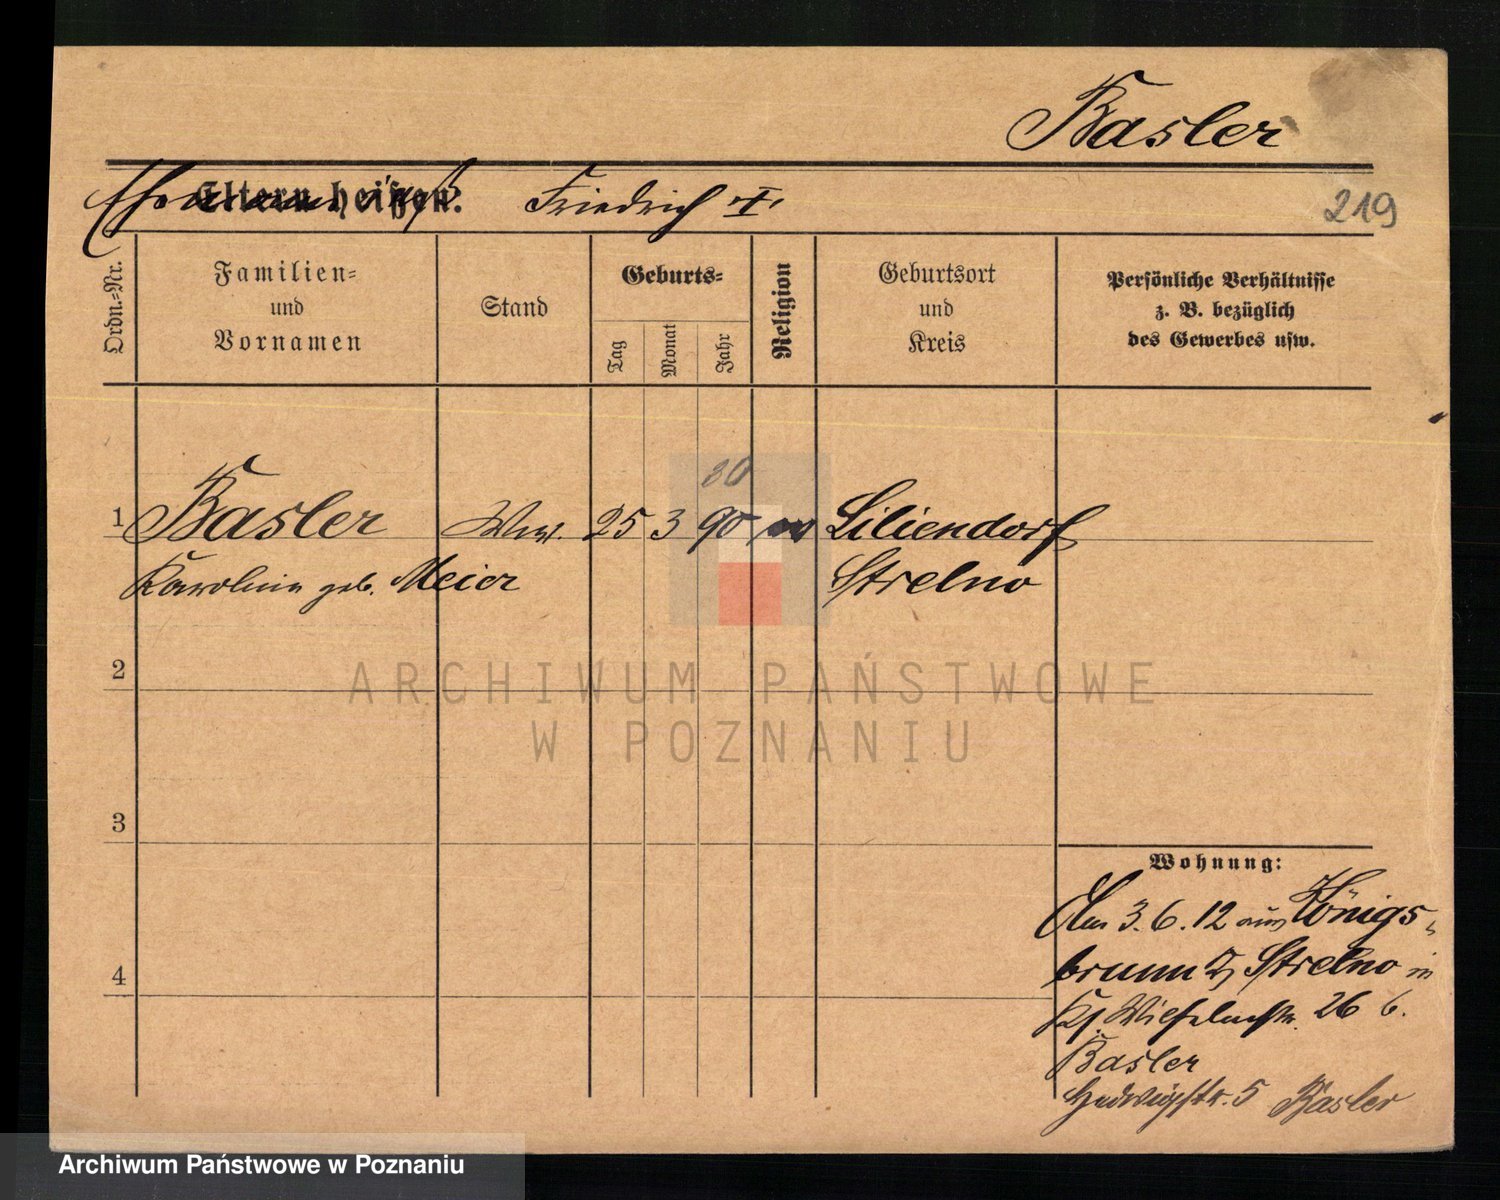 Basler
Eltern heißen: Friedrich †.
219
Ordn.=Nr.
Familien=
und
Vornamen
Stand
Geburts=
Tag
Monat
Jahr
Religion
Geburtsort
und
Kreis
Persönliche Verhältnisse
z. B. bezüglich
des Gewerbes usw.
80
1 Basler Ww. 25 3 90 Liliendorf
Karoline geb. Meier Strelno
2
ARCHIWUM PAŃSTWOWE
W POZNANIU
3
Wohnung:
Am 3.6.12 aus Königs-
brunn Strelno in
26 b.
4
Basler
Hedwigstr. 5 Basler
Archiwum Państwowe w Poznaniu